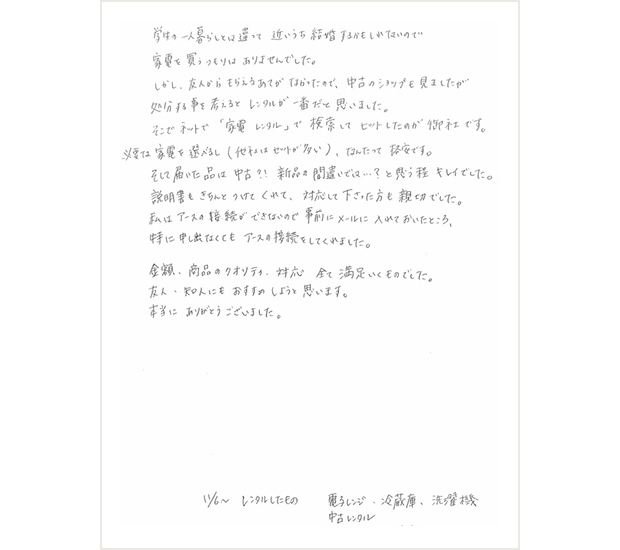 学生の一人暮らしとは違って 近いうち結婚するかもしれないので
家電を買うつもりはありませんでした。
しかし、友人からもらえるあてがなかったので、中古のショップも見ましたが
処分する事を考えるとレンタルが一番だと思いました。
そこでネットで「家電 レンタル」で検索してヒットしたのが御社です。
必要な家電を選べるし(他社はセットが多い)、なんたって格安です。
そして届いた品は中古?! 新品の間違いでは…?と思う程キレイでした。
説明書もきちんとつけてくれて、対応して下さった方も親切でした。
私はアースの接続ができないので事前にメールに入れておいたところ、
特に申し出なくてもアースの接続をしてくれました。
金額、商品のクオリティ、対応 全て満足いくものでした。
友人・知人にもおすすめしようと思います。
本当にありがとうございました。
11/6〜 レンタルしたもの 電子レンジ・冷蔵庫、洗濯機
中古レンタル